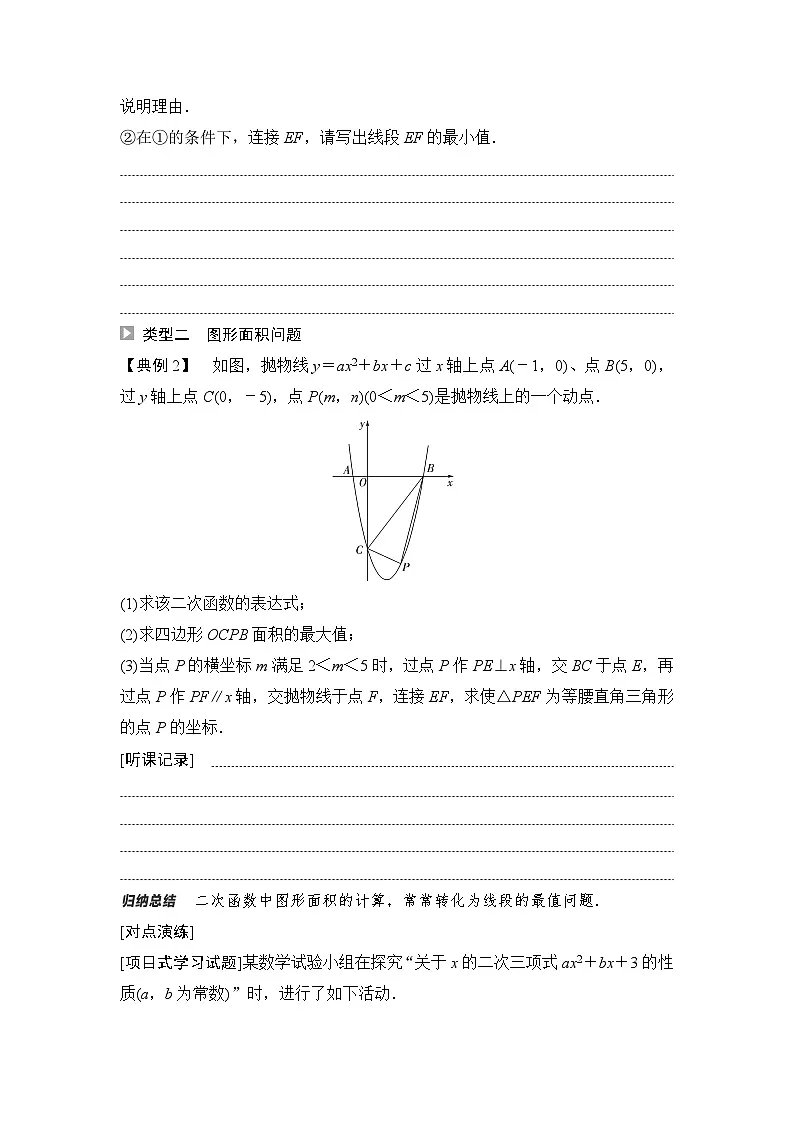 说明理由．
②在①的条件下，连接 EF，请写出线段 EF 的最小值．
类型二　图形面积问题
【典例 2】　如图，抛物线 y＝ax²＋bx＋c 过 x 轴上点 A(－1，0)、点 B(5，0)，
过 y 轴上点 C(0，－5)，点 P(m，n)(0＜m＜5)是抛物线上的一个动点．
y
A
O
B
x
C
P
(1)求该二次函数的表达式；
(2)求四边形 OCPB 面积的最大值；
(3)当点 P 的横坐标 m 满足 2＜m＜5 时，过点 P 作 PE⊥x 轴，交 BC 于点 E，再
过点 P 作 PF∥x 轴，交抛物线于点 F，连接 EF，求使△PEF 为等腰直角三角形
的点 P 的坐标．
[听课记录]
归纳总结　二次函数中图形面积的计算，常常转化为线段的最值问题．
[对点演练]
[项日式学习试题]某数学试验小组在探究“关于 x 的二次三项式 ax²＋bx＋3 的性
质(a，b 为常数)”时，进行了如下活动．